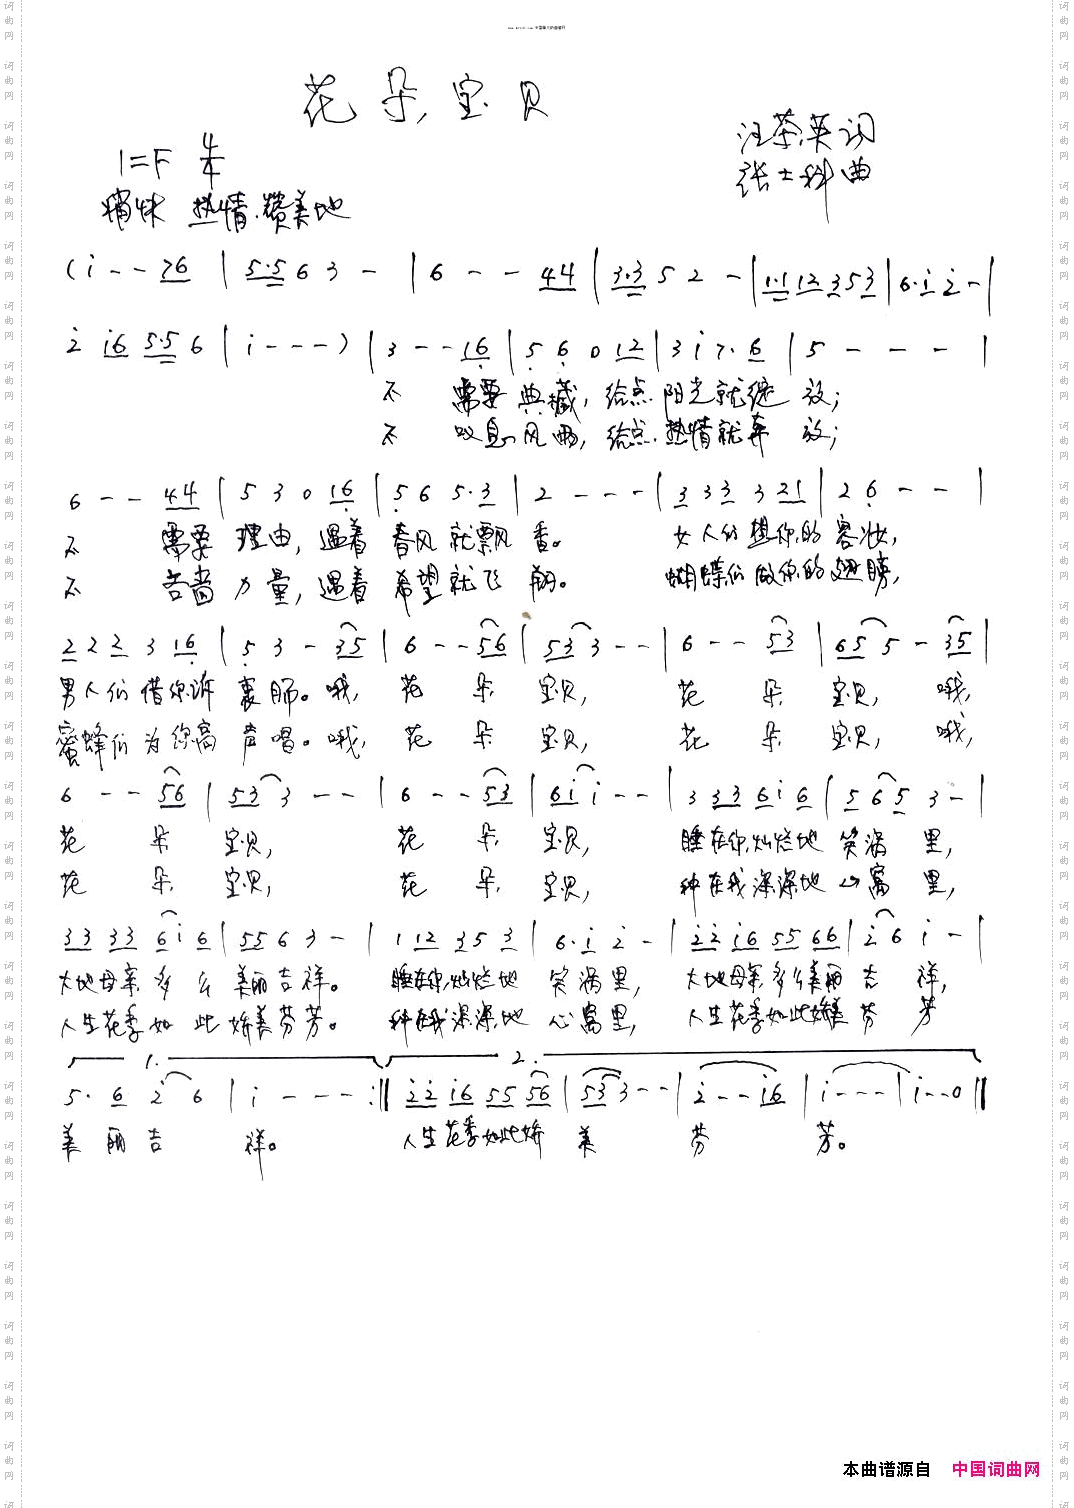 花朵,宝贝
汪茶英词
1=F 4/4
张士科曲
痛快 热情.赞美地
(i - - 76 | 5·5 6 3 - | 6 - - 44 | 3·3 5 2 - | 1·1 12 3 5 3 | 6·i 2 - |
2 i6 5·5 6 | i - - - ) | 3 - - 16 | 5 6 0 12 | 3 i 7· 6 | 5 - - - |
不 需要 典藏,给点.阳光就绽 放;
不 叹息 风雨,给点.热情就奔 放;
6 - - 44 | 5 3 0 16 | 5 6 5·3 | 2 - - - | 3 3 3 3 21 | 2 6 - - |
不 需要 理由,遇着 春风就飘 香。 女人们想你的容妆,
不 吝啬 力量,遇着 希望就飞 翔。 蝴蝶们做你的翅膀,
2 2 2 3 16 | 5 3 - 35 | 6 - - 56 | 53 3 - - | 6 - - 53 | 65 5 - 35 |
男人们借你诉 衷肠。哦, 花 朵 宝贝, 花 朵 宝贝, 哦,
蜜蜂们为你高 声唱。哦, 花 朵 宝贝, 花 朵 宝贝, 哦,
6 - - 56 | 53 3 - - | 6 - - 53 | 6i i - - | 3 33 6 i 6 | 5 6 5 3 - |
花 朵 宝贝, 花 朵 宝贝, 睡在你灿烂地 笑涡 里,
花 朵 宝贝, 花 朵 宝贝, 种在我深深地 心窝 里,
33 33 6 i 6 | 55 6 3 - | 1 12 3 5 3 | 6·i 2 - | 22 i6 55 66 | 2 6 i - |
大地母亲 多 么 美丽吉祥。 睡在你灿烂地 笑涡里, 大地母亲多么美丽 吉 祥,
人生花季如 此 娇美芬芳。 种在我深深地 心窝里, 人生花季如此娇美 芬 芳
1. 2.
5· 6 2 6 | i - - - :|| 22 i6 55 56 | 53 3 - - | 2 - - i6 | i - - - | i - - 0 ||
美 丽 吉 祥。 人生花季如此娇 美 芬 芳。
本曲谱源自 中国词曲网